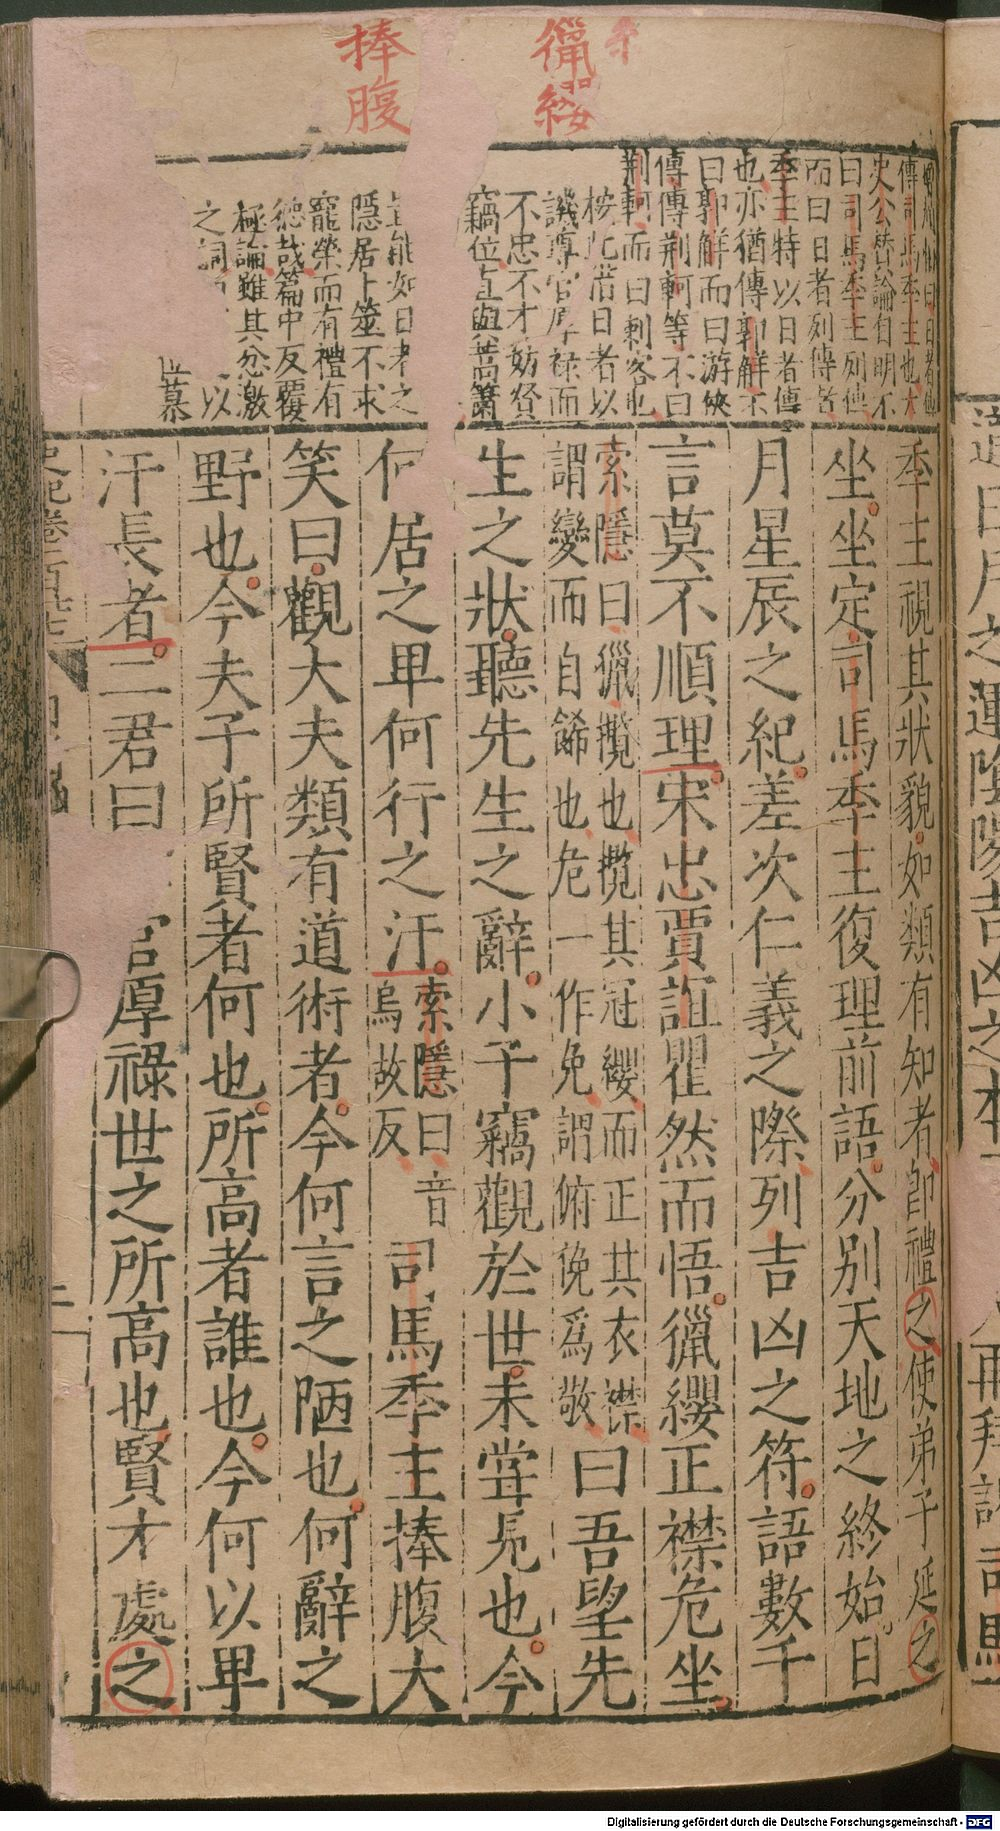 獵纓
捧腹
傳司馬季主也太
史公贊論自明不
曰司馬季主列傳
而曰日者列傳者
季主特以日者傳
也亦猶傳郭解不
曰郭解而曰游俠
傳傳荆軻等不曰
荆軻而曰刺客也
按此治日者以
譏尊官厚禄而
不忠不才妨賢
竊位直與蒿蕭
豈能如日者之
隱居卜筮不求
寵榮而有禮有
德哉篇中反覆
極論雖其忿激
之詞 以
世慕
季主視其狀貌如類有知者卽禮之使弟子延之
坐坐定司馬季主復理前語分别天地之終始日
月星辰之紀差次仁義之際列吉凶之符語數千
言莫不順理宋忠賈誼瞿然而悟獵纓正襟危坐
索隱曰獵攬也攬其冠纓而正其衣襟
謂變而自飾也危一作免謂俯俛爲敬
曰吾望先
生之狀聽先生之辭小子竊觀於世未甞見也今
何居之卑何行之汙
索隱曰音
烏故反
司馬季主捧腹大
笑曰觀大夫類有道術者今何言之陋也何辭之
野也今夫子所賢者何也所高者誰也今何以卑
汙長者二君曰 官厚祿世之所高也賢才處之
史記卷
再拜
司馬
Digitalisierung gefördert durch die Deutsche Forschungsgemeinschaft - DFG